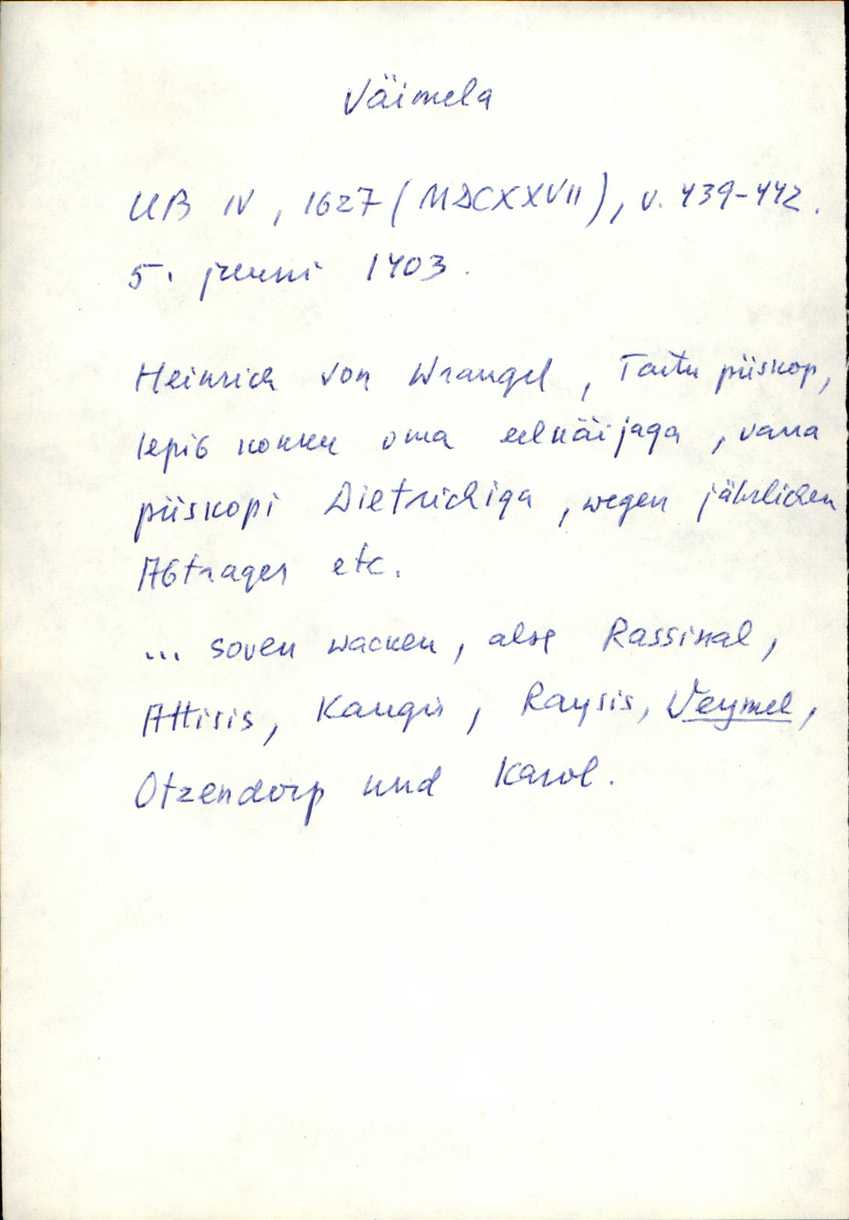 Väimela
UB IV, 1627 (MDCXXVII), v. 439-442.
5. juuni 1403.
Heinrich von Wrangel, Tartu piiskop,
lepib kokku oma eelkäijaga, vana
piiskopi Dietrichiga, wegen jährlichen
Abtrages etc.
... soven wacken, alse Rassinal,
Attisis, Kaugis, Raysis, Veymel,
Otzendorp und Karol.